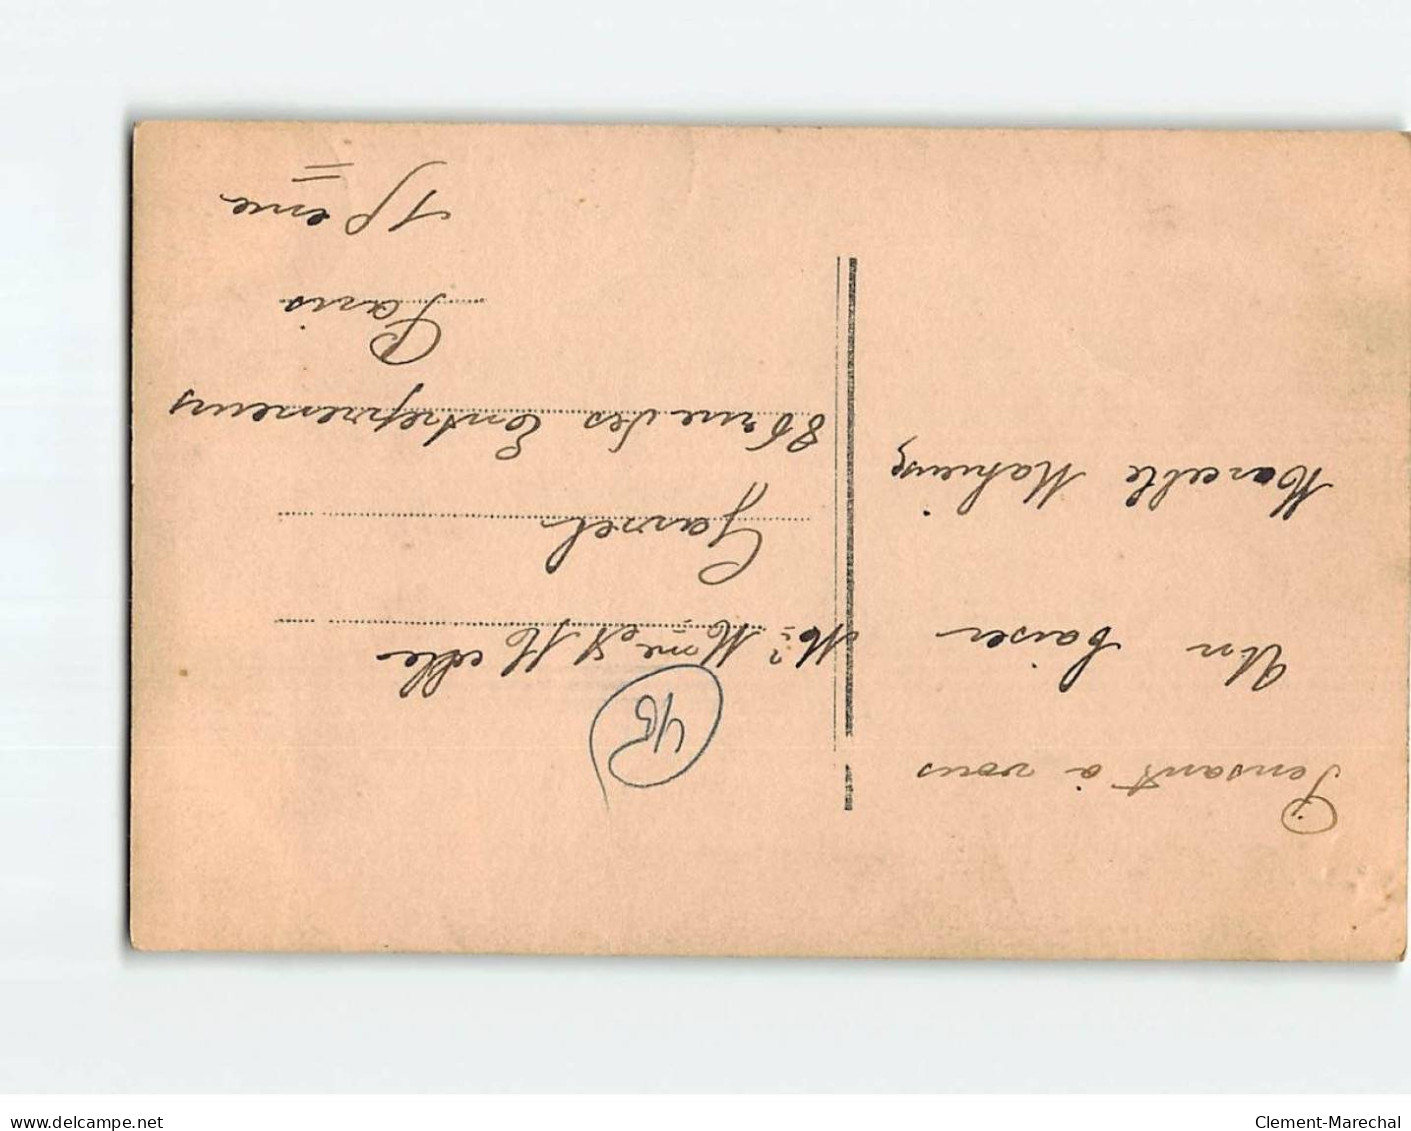 Pensant à vous
Un baiser
Marcelle Mahieux
Mr Mme et Melle
86 rue des Entrepreneurs
Paris
15eme
www.delcampe.net
Clement-Marechal